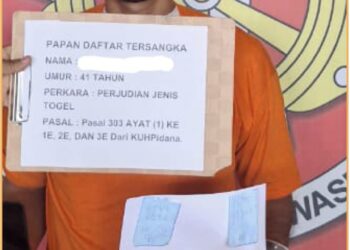 PAPAN DAFTAR TERSANGKA
NAMA :
UMUR : 41 TAHUN
PERKARA : PERJUDIAN JENIS
TOGEL
PASAL : Pasal 303 AYAT (1) KE
1E, 2E, DAN 3E Dari KUHPidana.